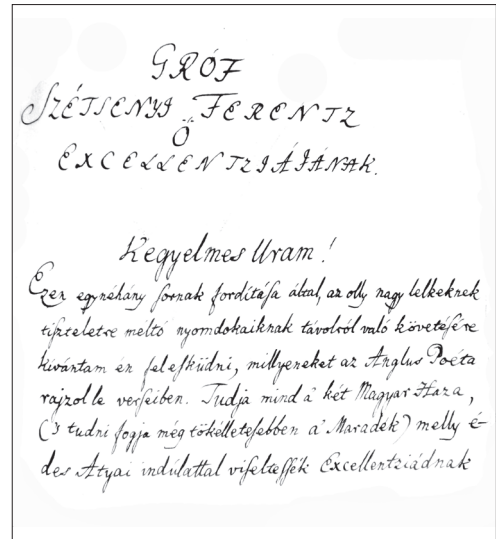 GRÓF
SZÉTSENYI FERENTZ
Ő
EXCELLENTZIÁJÁNAK.
Kegyelmes Uram!
Ezen egynéhány ſornak fordítáſa által, az olly nagy lelkeknek
tiſzteletre méltó nyomdokaiknak távolról való követéſére
kívántam én feleſküdni, millyeneket az Anglus Poéta
rajzol le verſeiben. Tudja mind a' két Magyar Haza,
('s tudni fogja még tökélletesebben a' Maradék) melly é-
des Atyai indúlattal viſelteſsék Excellentziádnak